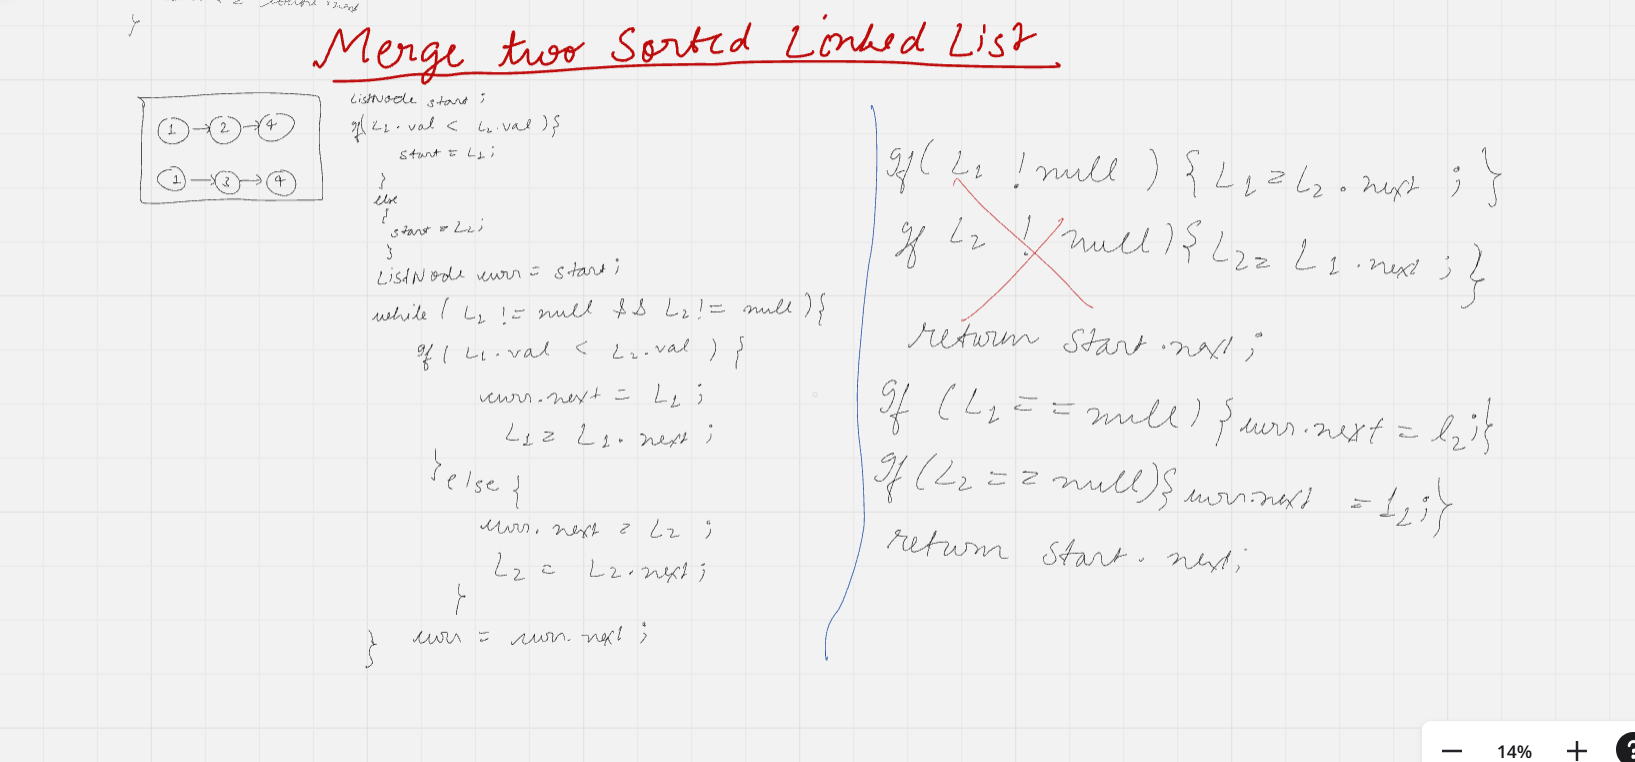 }
Merge two Sorted Linked List
1 → 2 → 4
1 → 3 → 4
ListNode start ;
if( L1 . val < L2 . val ) {
start = L1 ;
}
else
{
start = L2 ;
}
ListNode curr = start ;
while ( L1 != null && L2 != null ) {
if ( L1 . val < L2 . val ) {
curr . next = L1 ;
L1 = L1 . next ;
} else {
curr . next = L2 ;
L2 = L2 . next ;
}
} curr = curr . next ;
if( L1 ! null ) { L1 = L2 . next ; }
if L2 ! null ) { L2 = L1 . next ; }
return start . next ;
if ( L1 == null ) { curr . next = l2 ; }
if ( L2 == null ) { curr . next = l2 ; }
return start . next ;
14%
?